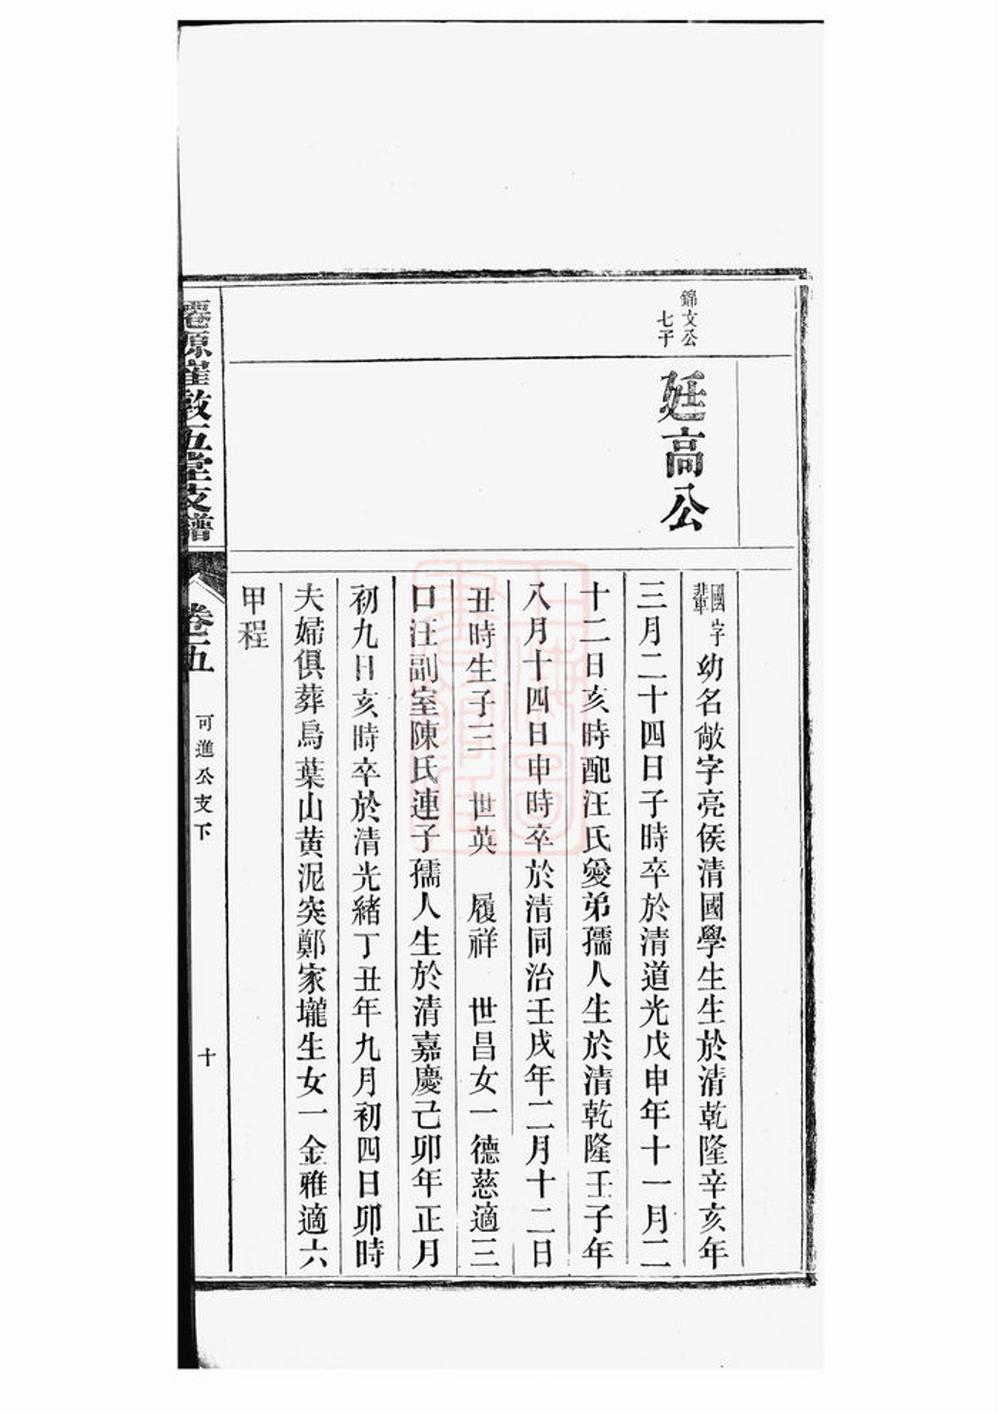 錦文公
七子
廷高公
國字
輩
幼名敞字亮侯清國學生生於清乾隆辛亥年
三月二十四日子時卒於清道光戊申年十一月二
十二日亥時配汪氏愛弟孺人生於清乾隆壬子年
八月十四日申時卒於清同治壬戌年二月十二日
丑時生子三 世英 履祥 世昌女一德慈適三
口汪副室陳氏連子孺人生於清嘉慶己卯年正月
初九日亥時卒於清光緒丁丑年九月初四日卯時
夫婦俱葬烏葉山黄泥突鄭家壠生女一金雅適六
甲程
源崔敦五堂支譜
卷五
可進公支下
十